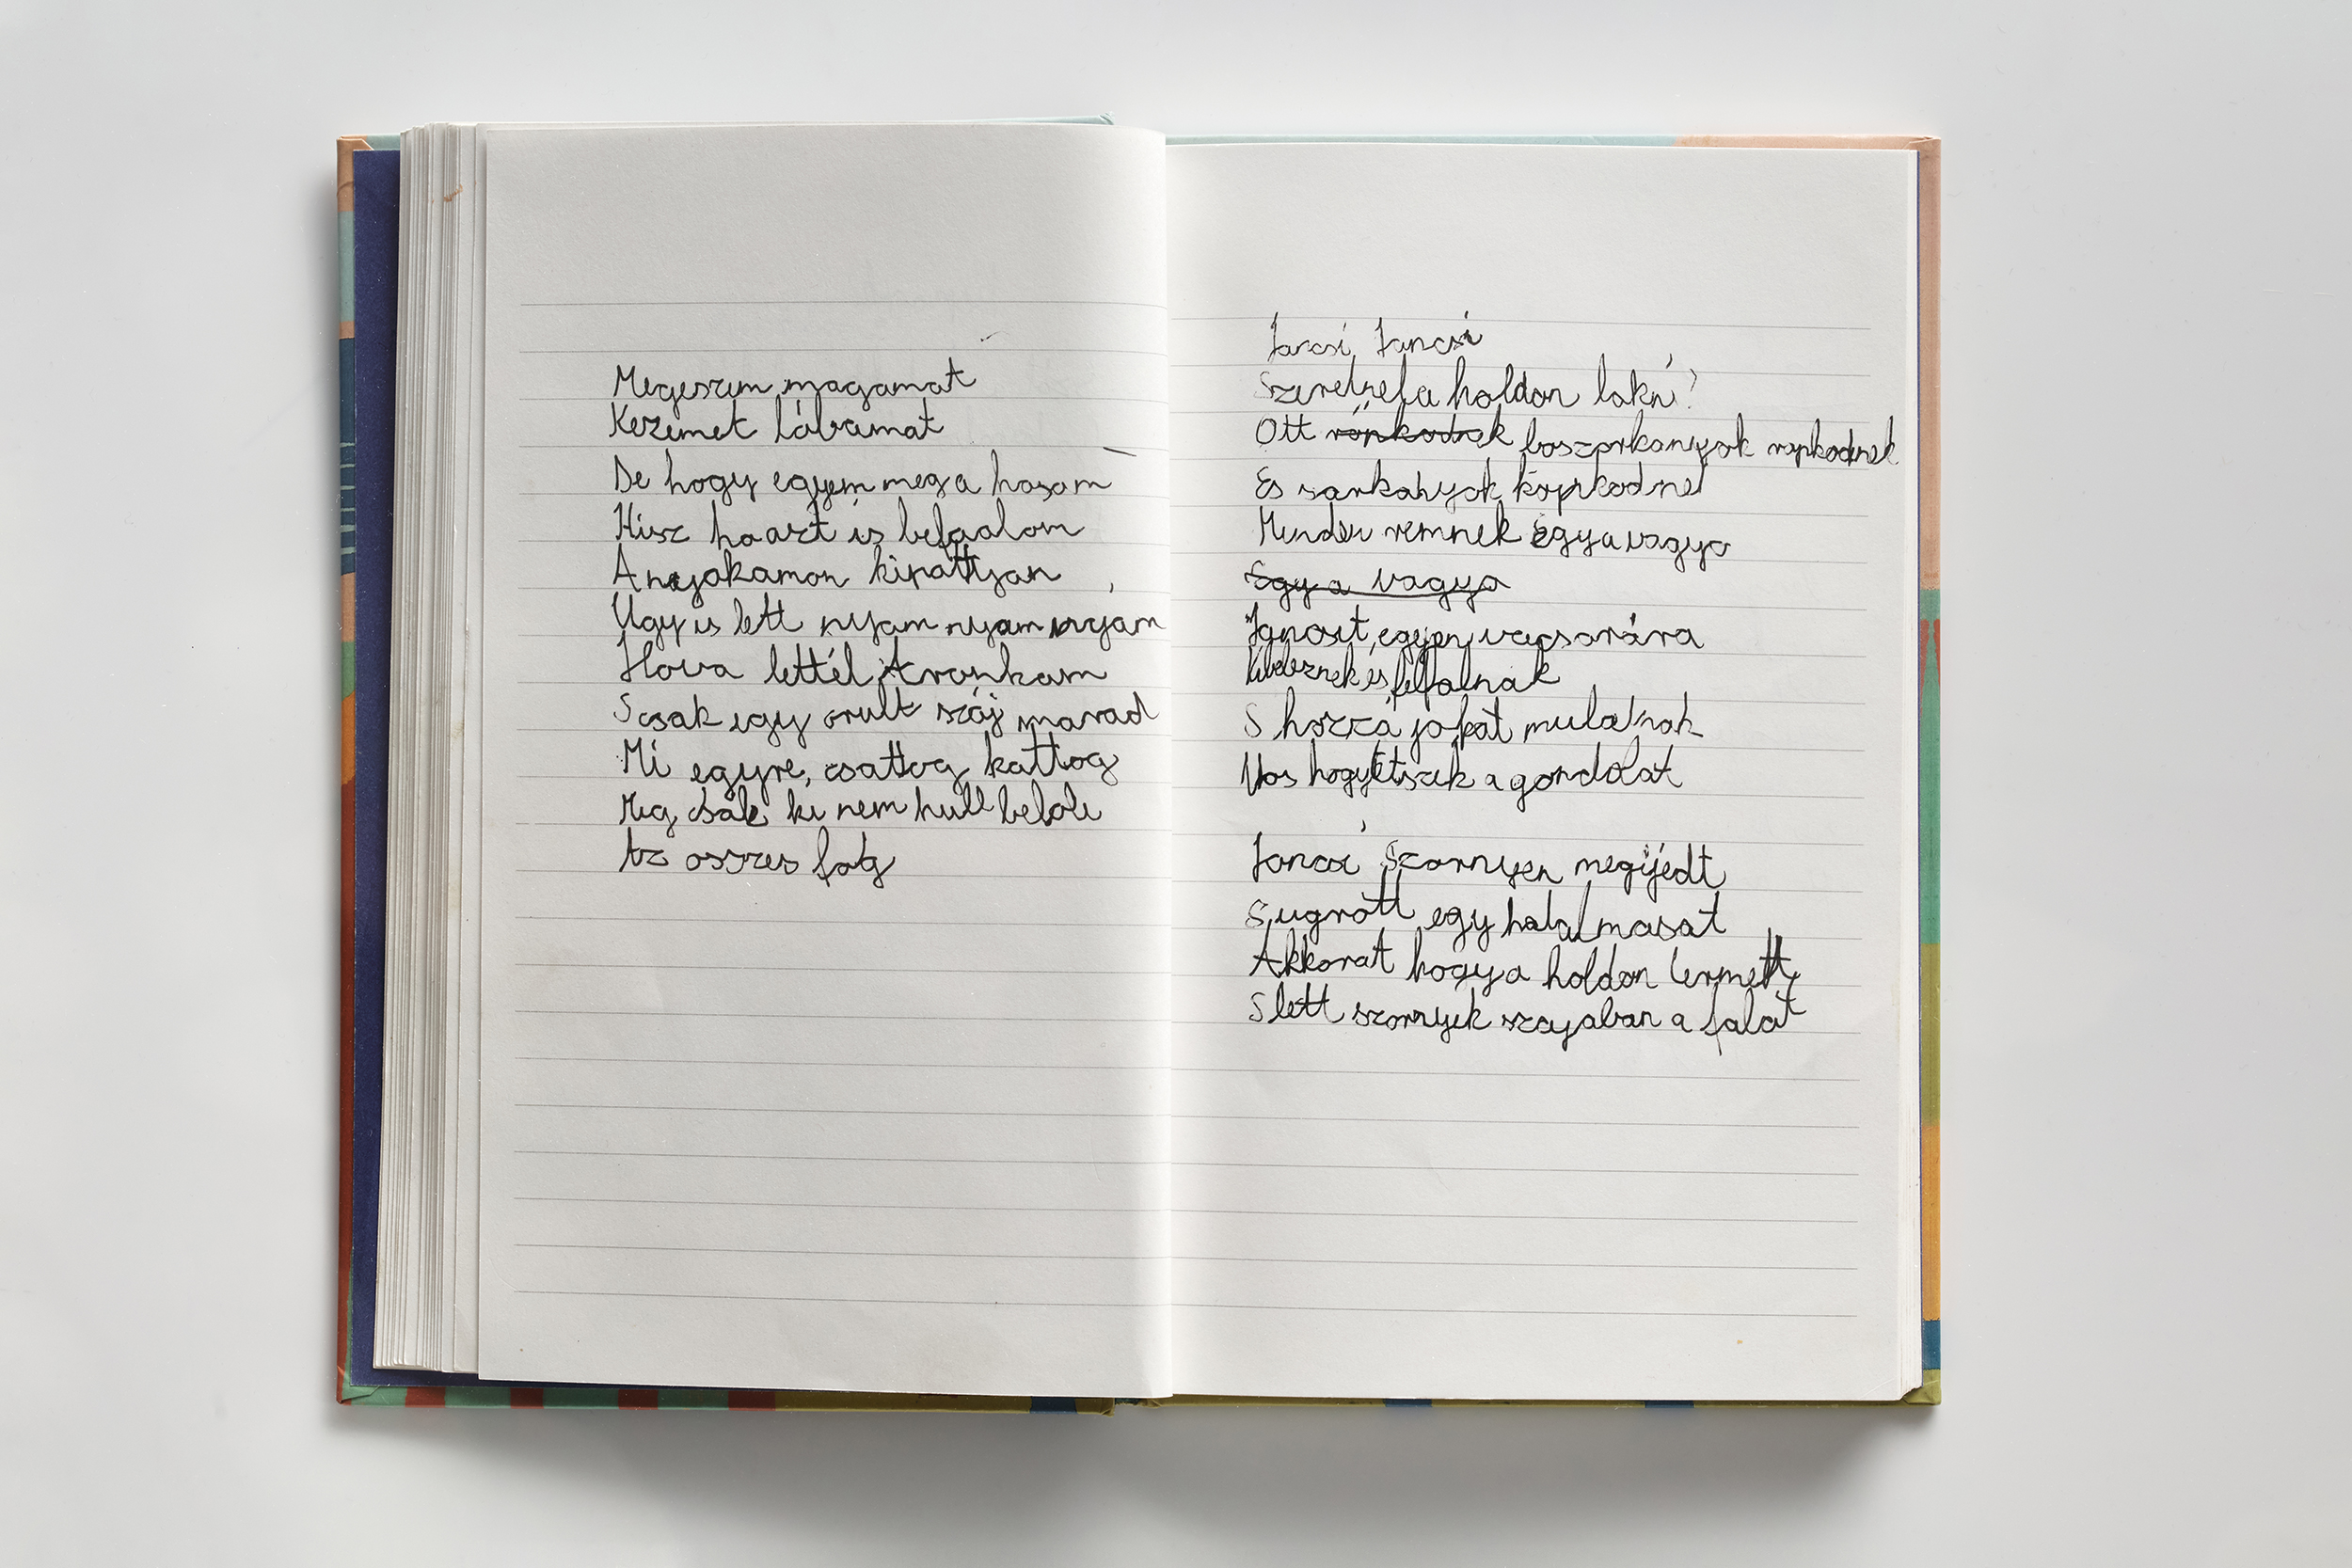 Megeszem magamat
Kezemet lábamat
De hogy egyem meg a hasam
Hisz ha azt is befaalom
A nyakamon kipattyan
Ugy is lett nyam nyam nyám
Hova lettél Aronkam
S csak egy orult száj marad
Mi egyre, csattog kattog
Mig csak ki nem hull belole
Az osszes fog
Jancsi Jancsi
Szeretnel a holdon lakni?
Ott röpkodnek boszorkanyok ropkodnek
Es sarkanyok köpkodnel
Minden remnek egy a vagya
Egy a vagya
Jancsit egyen vacsorára
Kibeleznek és felfalnak
S hozzá jokat mulatnak
Nos hogy tetszik a gondolat
Jancsi Szornyen megijedt
S ugrott egy hatalmasat
Akkorat hogy a holdon termett
S lett szornyek szajaban a falat